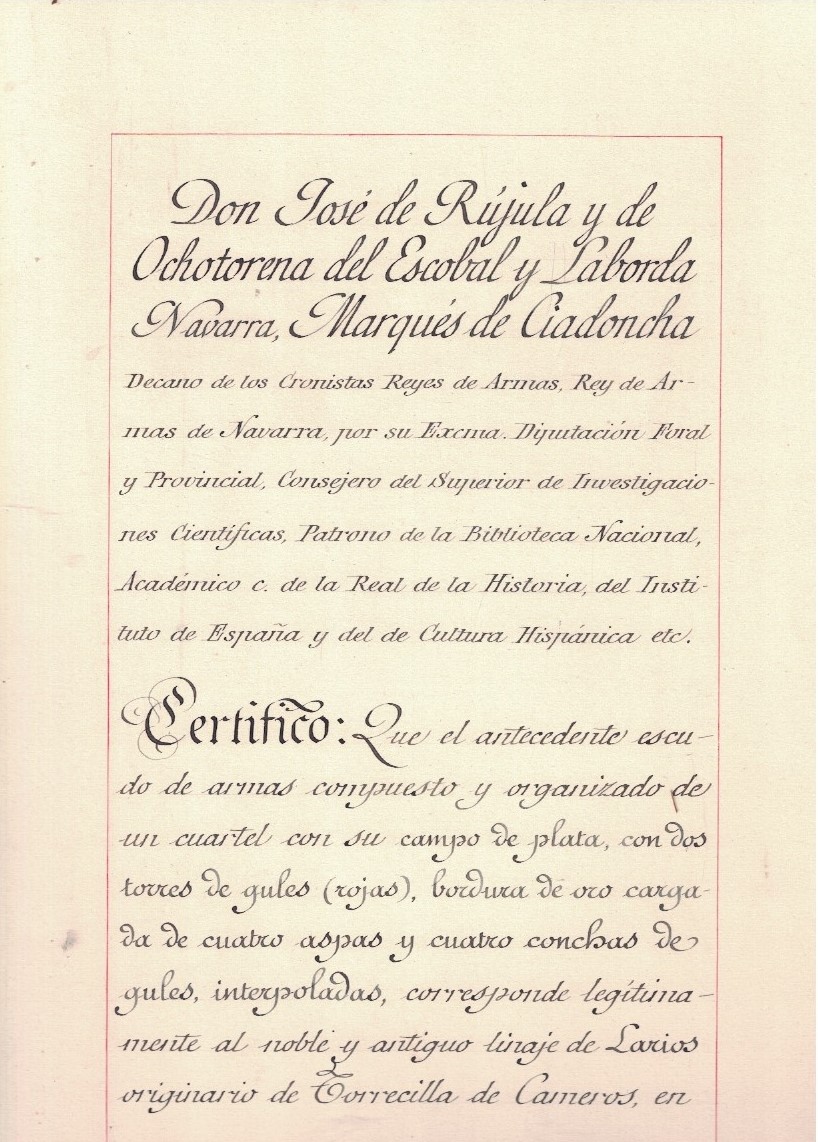 Don José de Rújula y de
Ochotorena del Escobal y Laborda
Navarra, Marqués de Ciadoncha
Decano de los Cronistas Reyes de Armas, Rey de Ar-
mas de Navarra, por su Excma. Diputación Foral
y Provincial, Consejero del Superior de Investigacio-
nes Científicas, Patrono de la Biblioteca Nacional,
Académico c. de la Real de la Historia, del Insti-
tuto de España y del de Cultura Hispánica etc.
Certifico: Que el antecedente escu-
do de armas compuesto y organizado de
un cuartel con su campo de plata, con dos
torres de gules (rojas), bordura de oro carga-
da de cuatro aspas y cuatro conchas de
gules, interpoladas, corresponde legítima-
mente al noble y antiguo linaje de Larios
originario de Torrecilla de Cameros, en